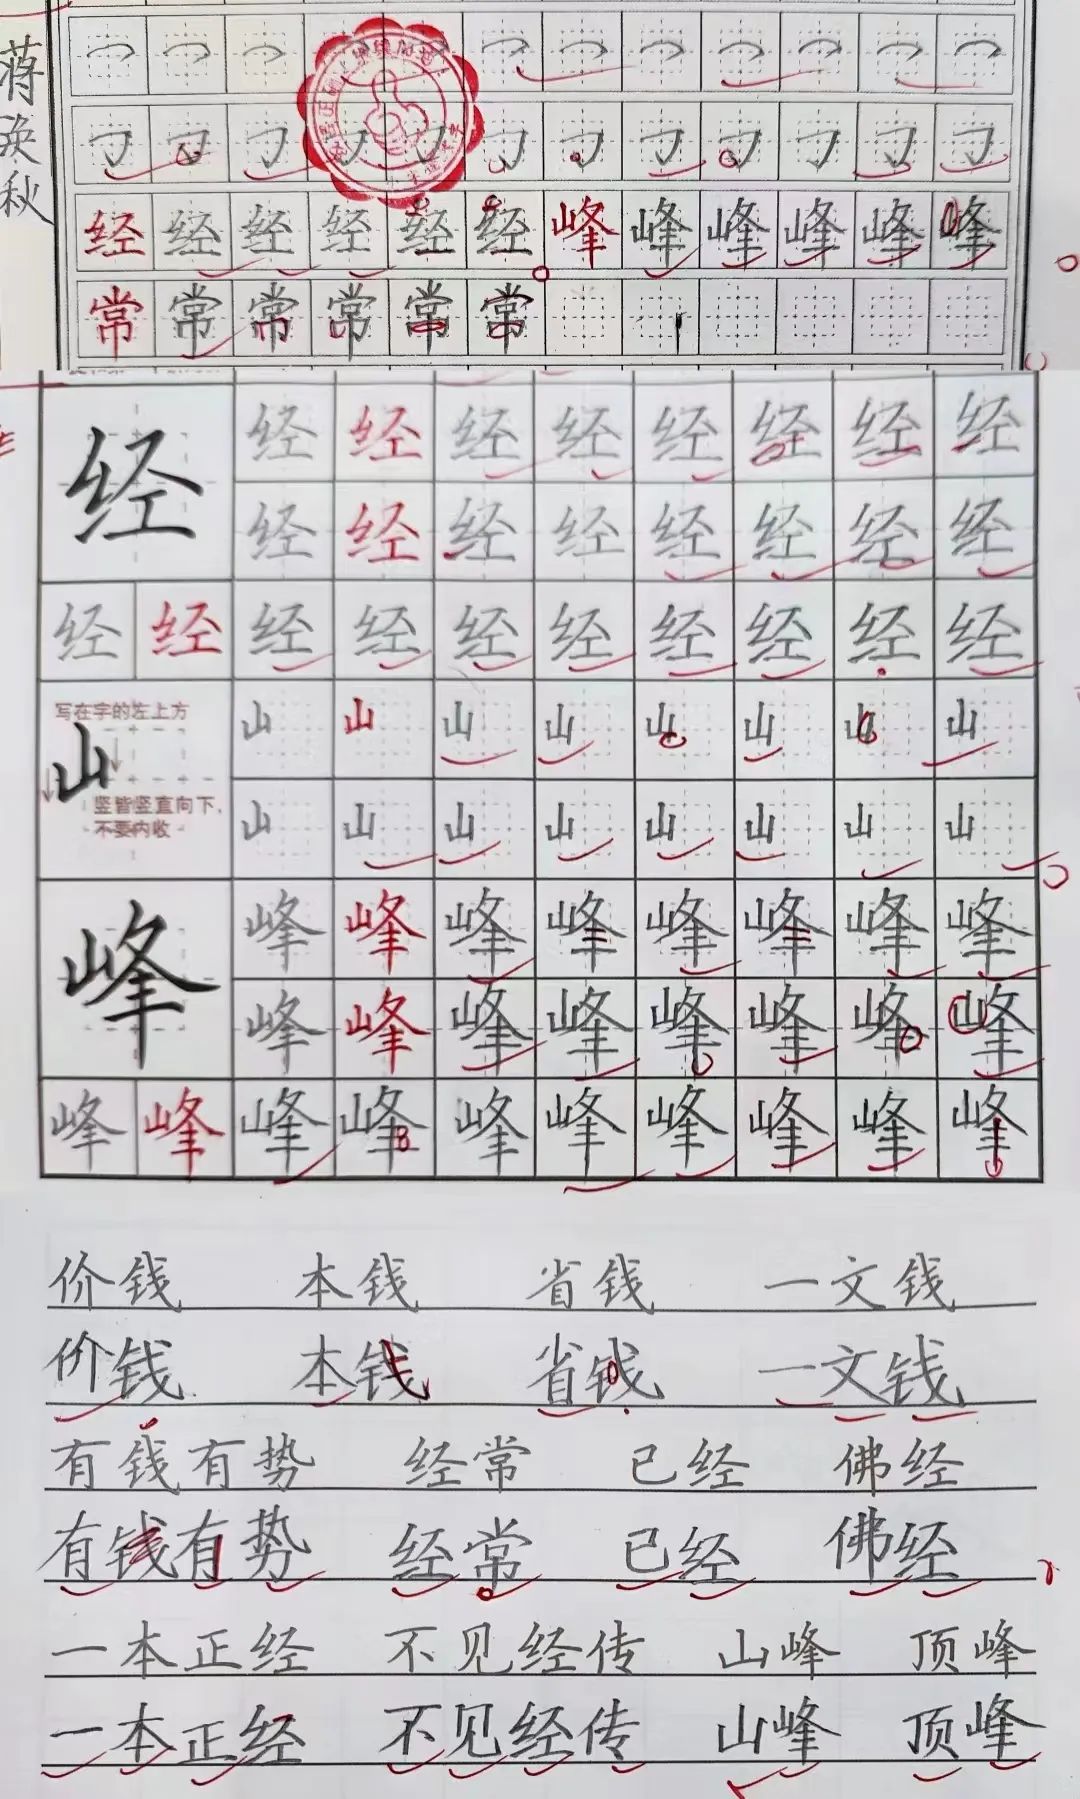 蒋涣秋
经经经经经经峰峰峰峰峰峰
常常常常常常
经经经经经经经经经
经经经经经经经经
经经经经经经经经经经
写在字的左上方
山山山山山山山山山
竖皆竖直向下,
不要内收
山山山山山山山山
峰峰峰峰峰峰峰峰峰
峰峰峰峰峰峰峰峰
峰峰峰峰峰峰峰峰峰峰
价钱 本钱 省钱 一文钱
价钱 本钱 省钱 一文钱
有钱有势 经常 已经 佛经
有钱有势 经常 已经 佛经
一本正经 不见经传 山峰 顶峰
一本正经 不见经传 山峰 顶峰